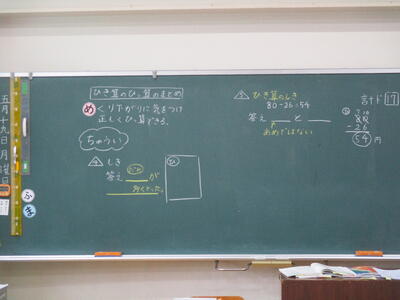 五月十九日月曜日
ふ
ま
ひき算のひっ算のまとめ
め くり下がりに気をつけ
正しくひっ算できる。
ちゅうい
しき
答え が
多くとった。
ひ
ひき算のしき
80-26=54
答え と
あめではない
計ド 17
80
-26
54 円